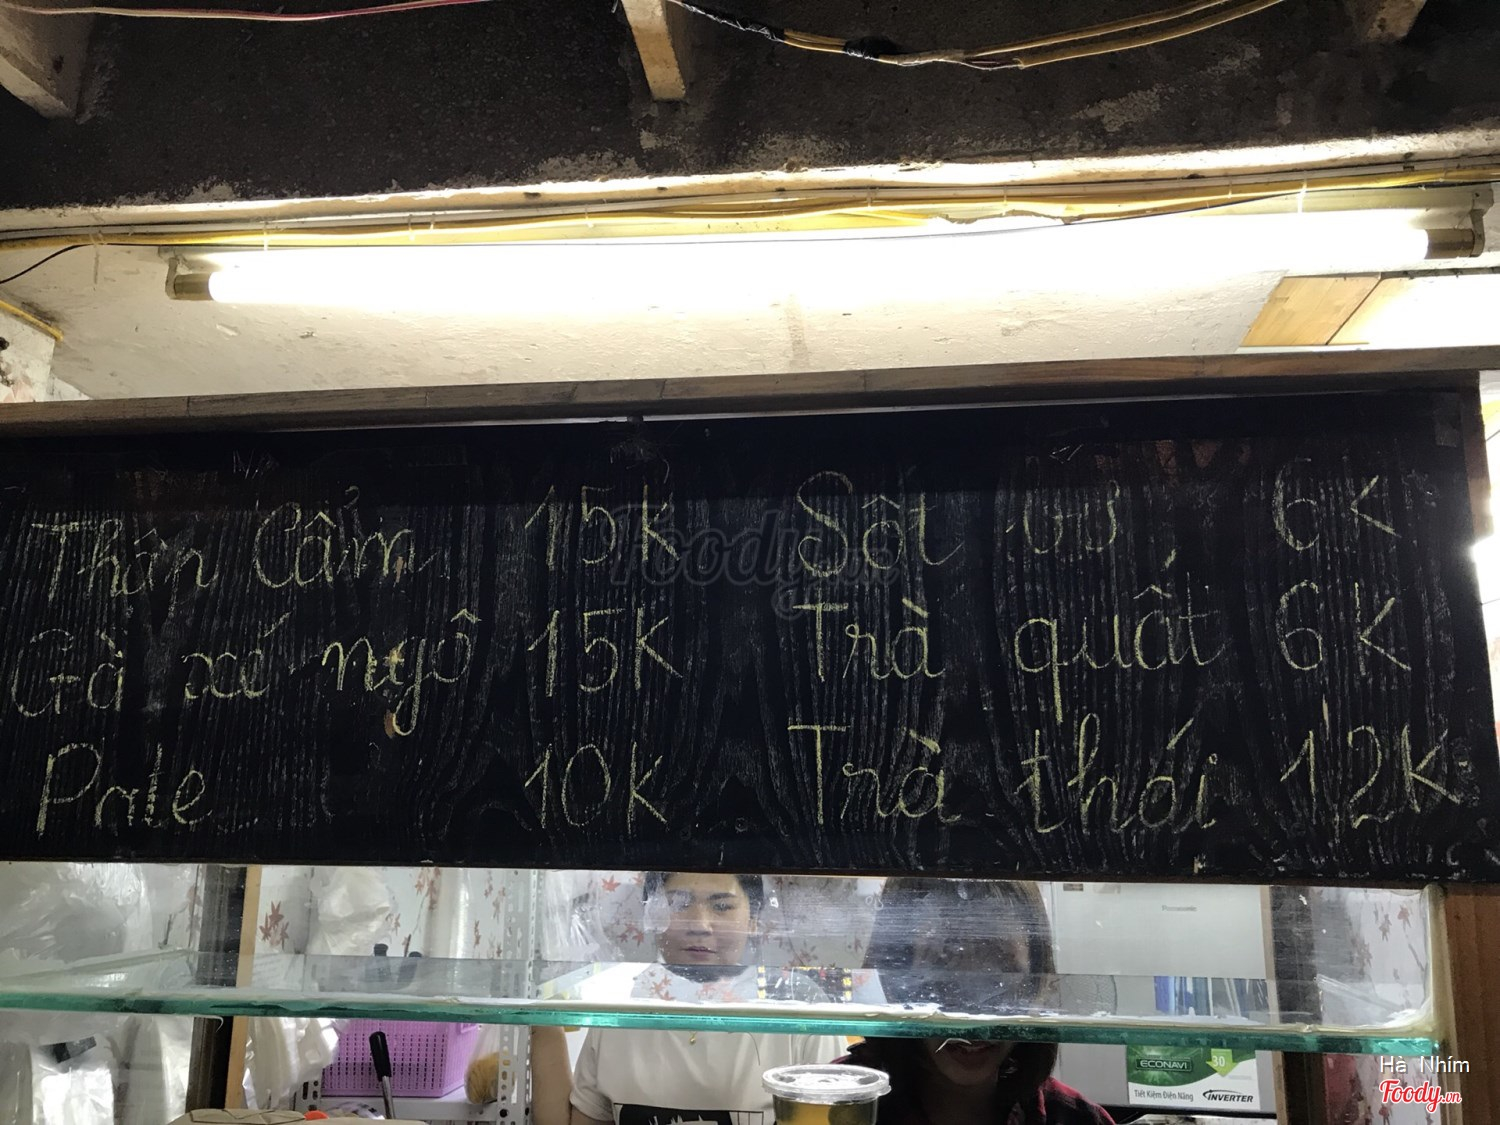 Thăn Cẩm 15K
Gà xé ngô 15K
Pate 10K
Sốt bơ 6K
Trà quất 6K
Trà thái 12K
Foody.vn
Panasonic
ECONAVI
30
Tiết Kiệm Điện Năng
INVERTER
Hà Nhím
Foody.vn